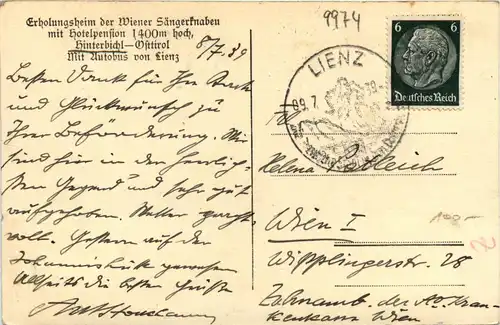 Erholungsheim der Wiener Sängerknaben
mit Hotelpension 1400m hoch,
Hinterbichl-Osttirol
Mit Autobus von Lienz
8/7.39
9974
Besten Dank für Ihre
und Glückwunsch zu
Ihrer Beförderung. Wir
sind hier in der herrlich-
sten Gegend und sehr gut
aufgehoben. Wetter pracht-
voll. Gestern auf der
Johannishütte gewesen
Allseits die besten Grüße
LIENZ
6 6
Deutsches Reich
Helena
Wien I
Wipplingerstr. 28
Zahnamb. der Kran-
kenkassa Wien
100-